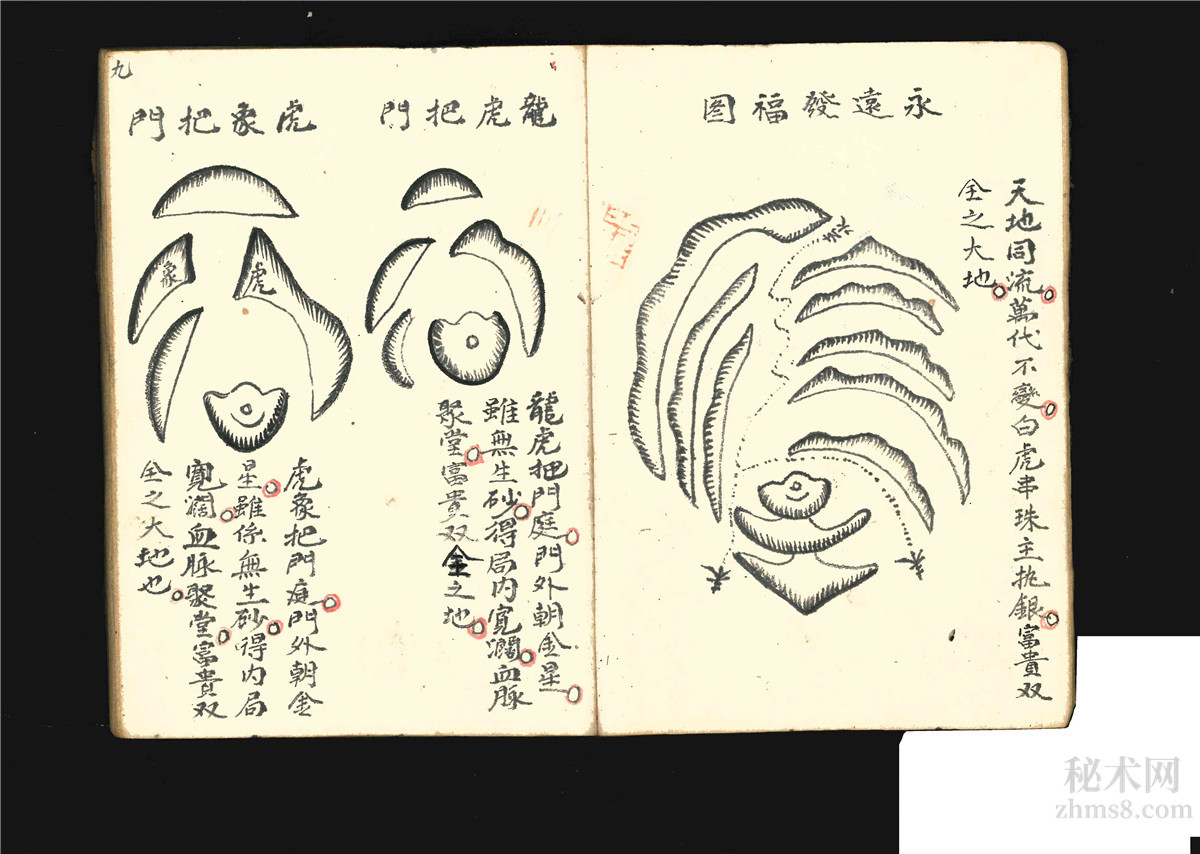 永遠發福圖
天地同流萬代不變白虎串珠主执銀富貴双
全之大地
來
龍虎把門
龍虎把門庭門外朝金星
雖無生砂得局内寬濶血脉
聚堂富貴双全之地
虎象把門
虎
象
虎象把門庭門外朝金
星雖係無生砂得内局
寬濶血脉聚堂富貴双
全之大地也
九
秘术网
zhms8.com